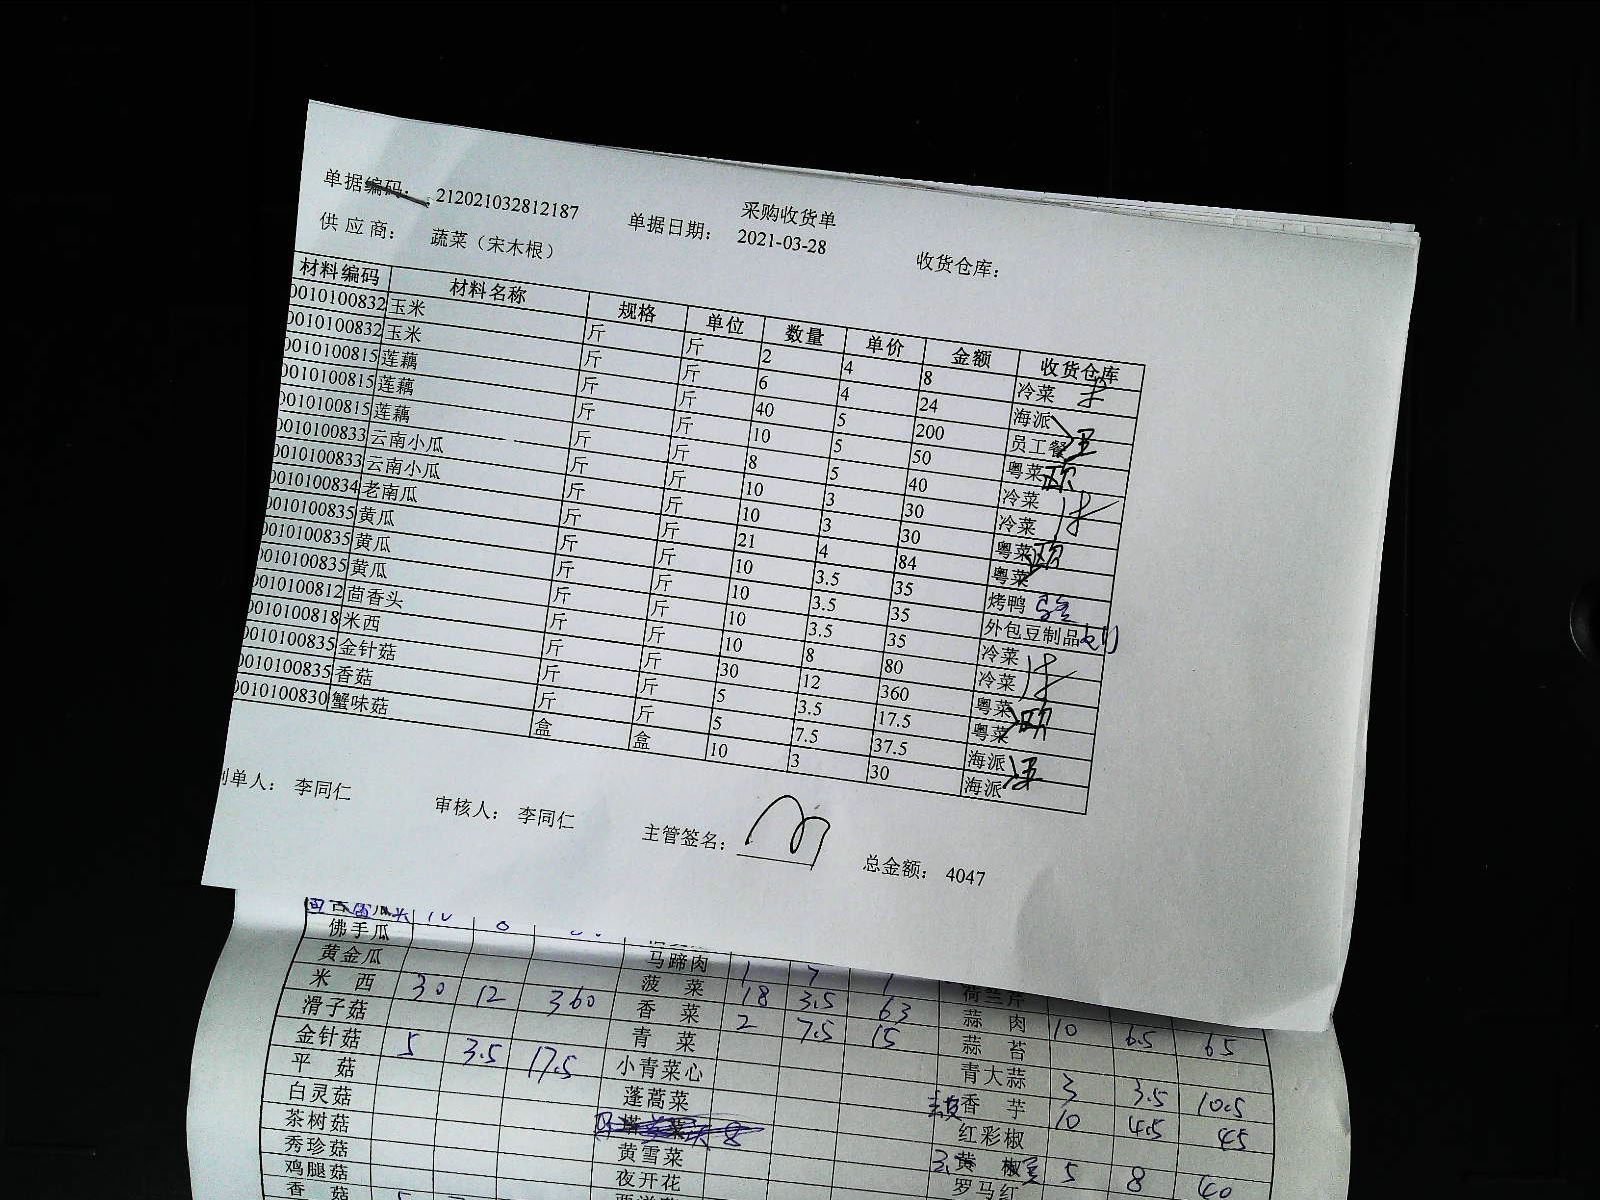 采购收货单
单据编码： 212021032812187 单据日期： 2021-03-28 收货仓库：
供应商： 蔬菜（宋木根）
材料编码 材料名称 规格 单位 数量 单价 金额 收货仓库
0010100832 玉米 斤 斤 2 4 8 冷菜
0010100832 玉米 斤 斤 6 4 24 海派
0010100815 莲藕 斤 斤 40 5 200 员工餐
0010100815 莲藕 斤 斤 10 5 50 粤菜
0010100815 莲藕 斤 斤 8 5 40 冷菜
0010100833 云南小瓜 斤 斤 10 3 30 冷菜
0010100833 云南小瓜 斤 斤 10 3 30 粤菜
0010100834 老南瓜 斤 斤 21 4 84 粤菜
0010100835 黄瓜 斤 斤 10 3.5 35 烤鸭
0010100835 黄瓜 斤 斤 10 3.5 35 外包豆制品
0010100835 黄瓜 斤 斤 10 3.5 35 冷菜
0010100812 茴香头 斤 斤 10 8 80 冷菜
0010100818 米西 斤 斤 30 12 360 粤菜
0010100835 金针菇 斤 斤 5 3.5 17.5 粤菜
0010100835 香菇 斤 斤 5 7.5 37.5 海派
0010100830 蟹味菇 盒 盒 10 3 30 海派
制单人： 李同仁 审核人： 李同仁 主管签名： 总金额： 4047
佛手瓜
黄金瓜 马蹄肉
米西 30 12 360 菠菜 18 3.5 63 荷兰芹
滑子菇 香菜 2 7.5 15 蒜肉 10 6.5 65
金针菇 5 3.5 17.5 青菜 蒜苔
平菇 小青菜心 青大蒜 3 3.5 10.5
白灵菇 蓬蒿菜 香芋 10 4.5 45
茶树菇 红彩椒
秀珍菇 黄雪菜 黄椒 5 8 40
鸡腿菇 夜开花 罗马红
香菇